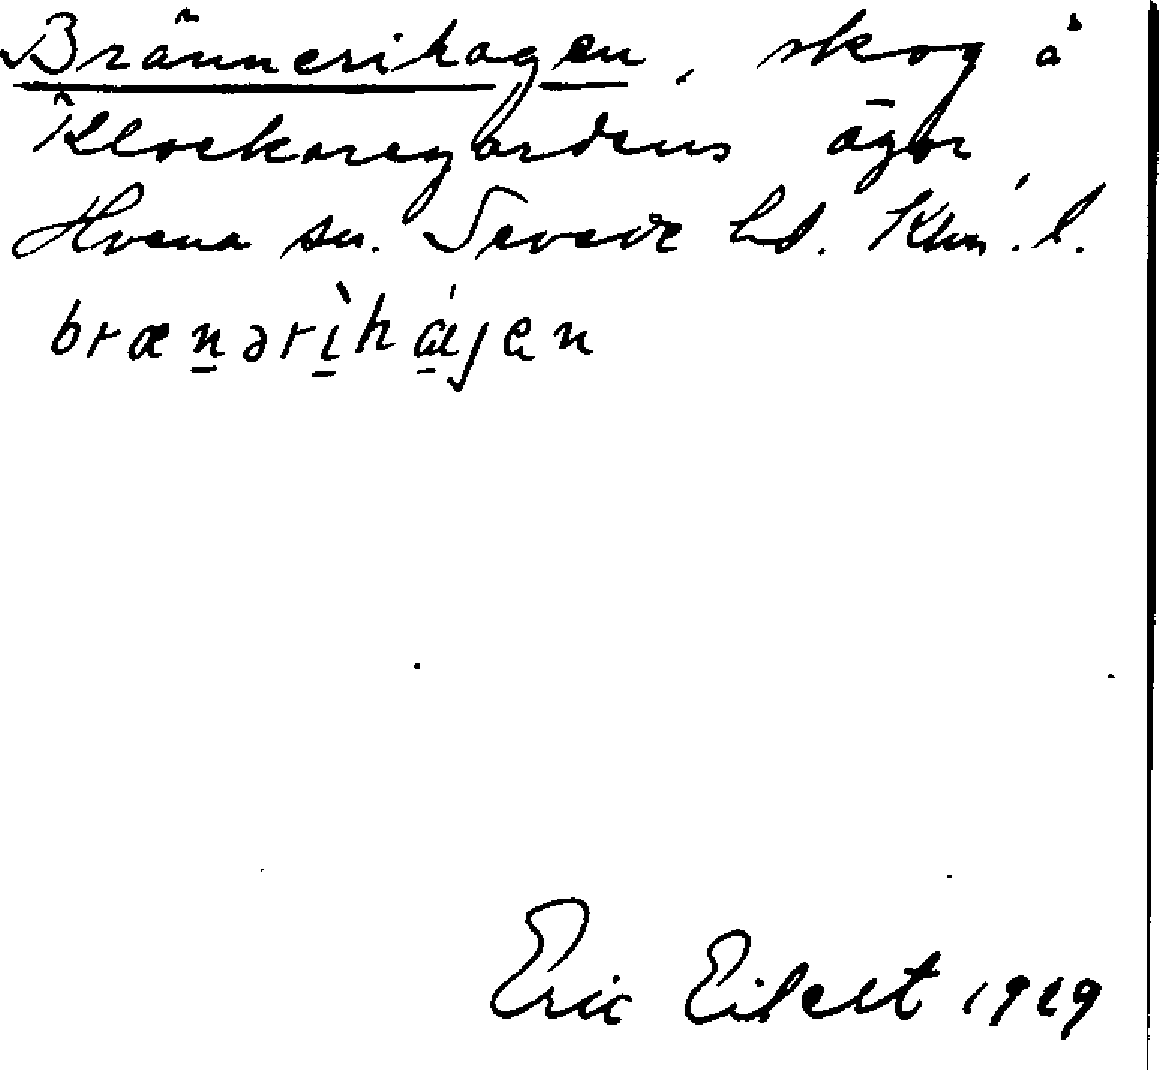 Brännerihagen, skog å
Klockaregårdens ägor
Hvena sn. Sevede hd. Klm. l.
brænərìhɑ́gen
Eric Eilert 1919